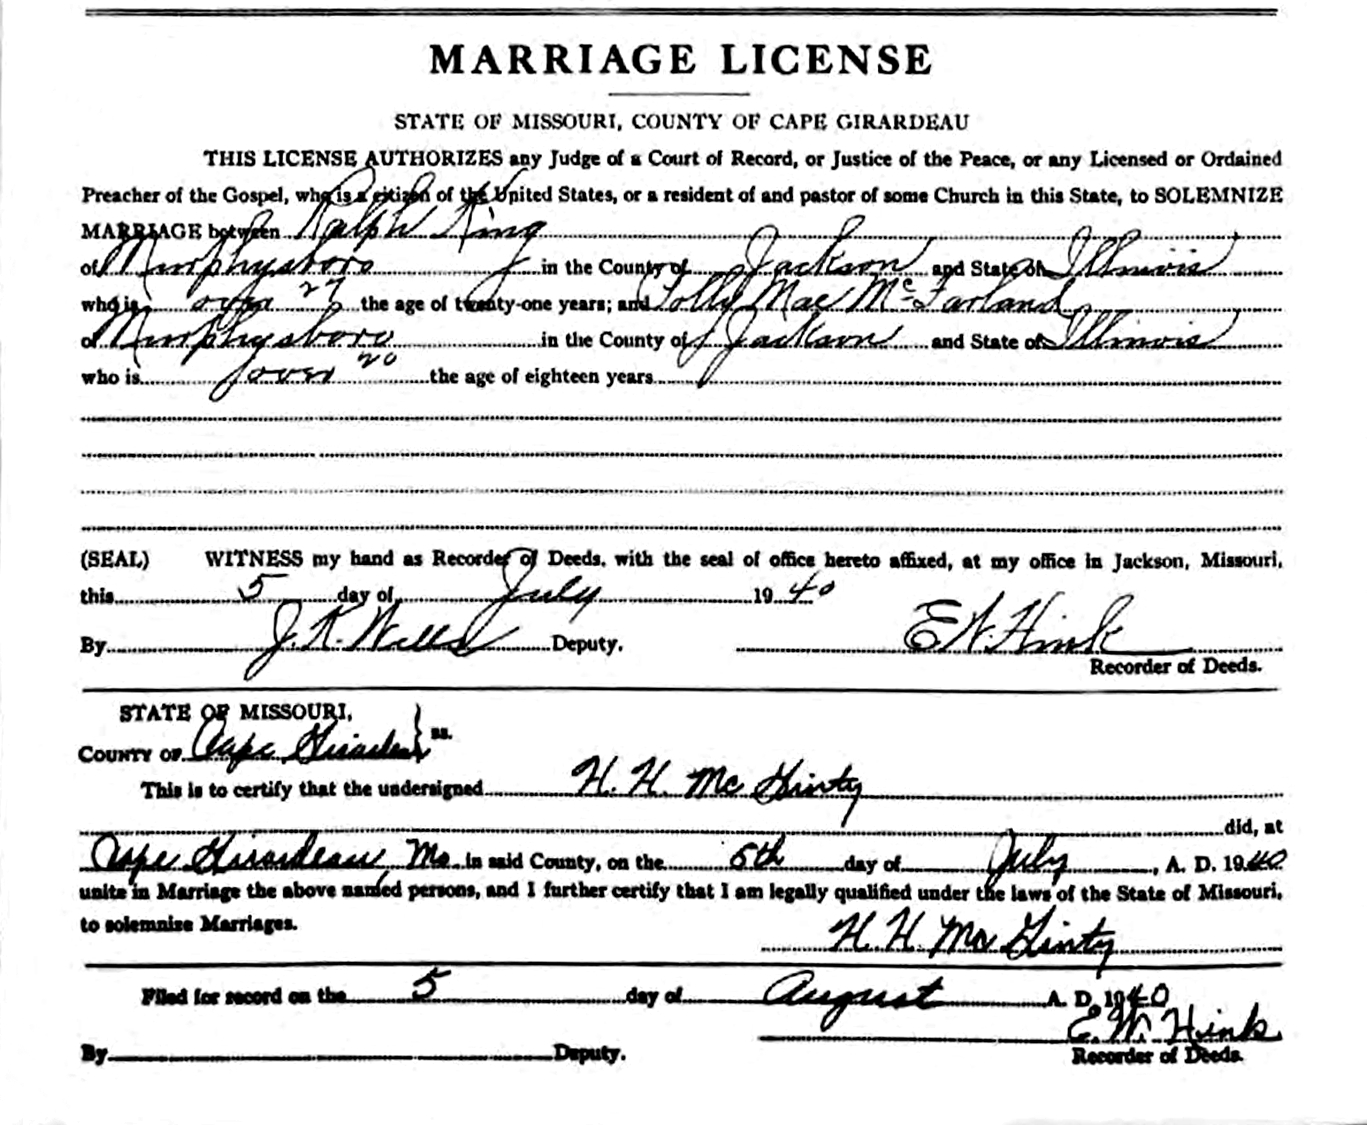 MARRIAGE LICENSE
STATE OF MISSOURI, COUNTY OF CAPE GIRARDEAU
THIS LICENSE AUTHORIZES any Judge of a Court of Record, or Justice of the Peace, or any Licensed or Ordained
Preacher of the Gospel, who is a citizen of the United States, or a resident of and pastor of some Church in this State, to SOLEMNIZE
MARRIAGE between Ralph King
of Murphysboro in the County of Jackson and State of Illinois
who is over 27 the age of twenty-one years; and Polly Mae McFarland
of Murphysboro in the County of Jackson and State of Illinois
who is over 20 the age of eighteen years
(SEAL) WITNESS my hand as Recorder of Deeds, with the seal of office hereto affixed, at my office in Jackson, Missouri,
this 5 day of July 1940
By J. R. Wells Deputy. E W. Hink
Recorder of Deeds.
STATE OF MISSOURI,
COUNTY OF Cape Girardeau } ss.
This is to certify that the undersigned H. H. McGinty
did, at
Cape Girardeau, Mo. in said County, on the 5th day of July, A. D. 1940
unite in Marriage the above named persons, and I further certify that I am legally qualified under the laws of the State of Missouri,
to solemnize Marriages.
H. H. McGinty
Filed for record on the 5 day of August A. D. 1940
E. W. Hink
By Deputy. Recorder of Deeds.